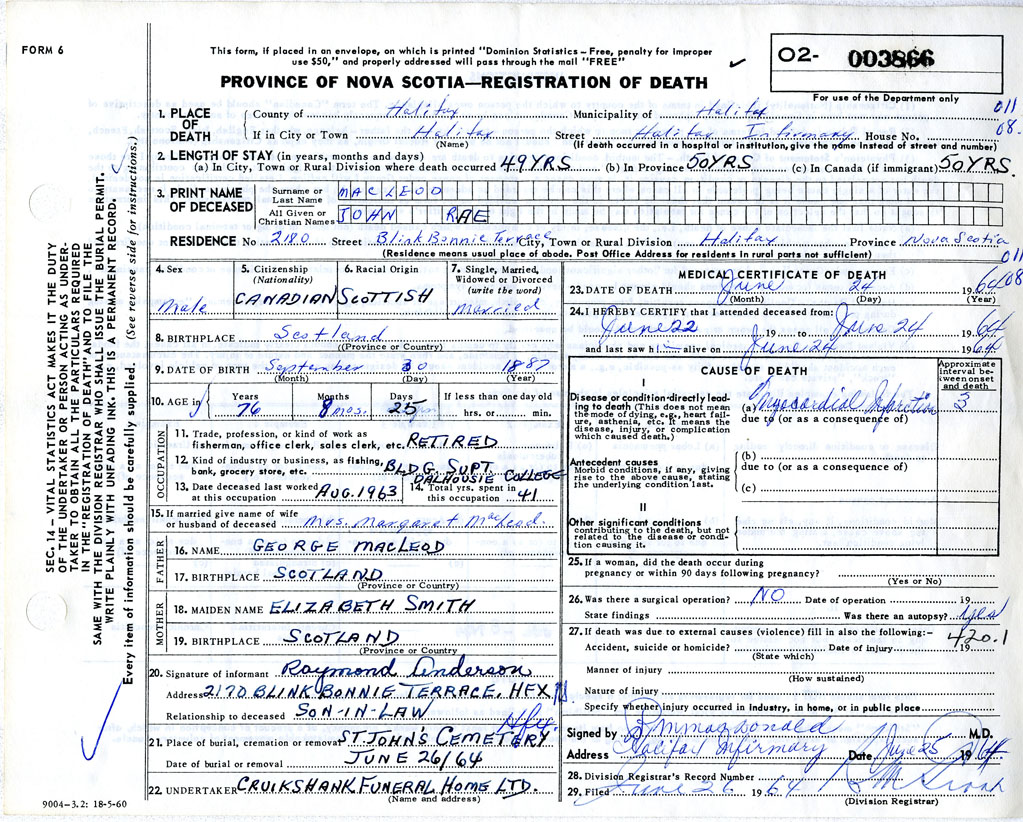 FORM 6
This form, if placed in an envelope, on which is printed "Dominion Statistics – Free, penalty for improper
use $50," and properly addressed will pass through the mail "FREE"
PROVINCE OF NOVA SCOTIA—REGISTRATION OF DEATH
02- 003866
For use of the Department only
011
08.
SEC. 14 – VITAL STATISTICS ACT MAKES IT THE DUTY
OF THE UNDERTAKER OR PERSON ACTING AS UNDER-
TAKER TO OBTAIN ALL THE PARTICULARS REQUIRED
IN THE "REGISTRATION OF DEATH" AND TO FILE THE
SAME WITH THE DIVISION REGISTRAR WHO SHALL ISSUE THE BURIAL PERMIT.
WRITE PLAINLY WITH UNFADING INK. THIS IS A PERMANENT RECORD.
Every item of information should be carefully supplied. (See reverse side for instructions.)
1. PLACE OF DEATH
County of Halifax Municipality of Halifax
If in City or Town Halifax Street Halifax Infirmary House No.
(Name) (If death occurred in a hospital or institution, give the name instead of street and number)
2. LENGTH OF STAY (in years, months and days)
(a) In City, Town or Rural Division where death occurred 49 YRS (b) In Province 50 YRS (c) In Canada (if immigrant) 50 YRS.
3. PRINT NAME OF DECEASED
Surname or Last Name MACLEOD
All Given or Christian Names JOHN RAE
RESIDENCE No 2180 Street Blink Bonnie Terrace City, Town or Rural Division Halifax Province Nova Scotia
(Residence means usual place of abode. Post Office Address for residents in rural parts not sufficient)
011
08
4. Sex
Male
5. Citizenship
(Nationality)
CANADIAN
6. Racial Origin
SCOTTISH
7. Single, Married, Widowed or Divorced
(write the word)
Married
8. BIRTHPLACE Scotland
(Province or Country)
9. DATE OF BIRTH September 30 1887
(Month) (Day) (Year)
10. AGE in Years Months Days If less than one day
76 8 mos. 25 hrs. or min.
OCCUPATION
11. Trade, profession, or kind of work as
fisherman, office clerk, sales clerk, etc. RETIRED
12. Kind of industry or business, as fishing,
bank, grocery store, etc. BLDG. SUPT. DALHOUSIE COLLEGE
13. Date deceased last worked at this occupation AUG. 1963
14. Total yrs. spent in this occupation 41
15. If married give name of wife
or husband of deceased Mrs. Margaret MacLeod.
FATHER
16. NAME GEORGE MACLEOD
17. BIRTHPLACE SCOTLAND
(Province or Country)
MOTHER
18. MAIDEN NAME ELIZABETH SMITH
19. BIRTHPLACE SCOTLAND
(Province or Country)
20. Signature of informant Raymond Anderson
Address 2170 BLINK BONNIE TERRACE, HFX
Relationship to deceased SON-IN-LAW
Hfx
21. Place of burial, cremation or removal ST. JOHN'S CEMETERY
Date of burial or removal JUNE 26/64
22. UNDERTAKER CRUIKSHANK FUNERAL HOME LTD.
(Name and address)
9004–3.2: 18-5-60
MEDICAL CERTIFICATE OF DEATH
23. DATE OF DEATH June 24 1964
(Month) (Day) (Year)
24. I HEREBY CERTIFY that I attended deceased from:
June 22 19 to June 24 1964
and last saw h alive on June 24 1964.
CAUSE OF DEATH
Approximate interval between onset and death
I
Disease or condition directly lead-
ing to death (This does not mean
the mode of dying, e.g., heart fail-
ure, asthenia, etc. It means the
disease, injury, or complication
which caused death.)
(a) Myocardial Infarction 3
due to (or as a consequence of)
Antecedent causes
Morbid conditions, if any, giving
rise to the above cause, stating
the underlying condition last.
(b)
due to (or as a consequence of)
(c)
II
Other significant conditions
contributing to the death, but not
related to the disease or condi-
tion causing it.
25. If a woman, did the death occur during
pregnancy or within 90 days following pregnancy?
(Yes or No)
26. Was there a surgical operation? NO Date of operation 19
State findings Was there an autopsy? yes
27. If death was due to external causes (violence) fill in also the following:–
420.1
Accident, suicide or homicide? Date of injury 19
(State which)
Manner of injury
(How sustained)
Nature of injury
Specify whether injury occurred in industry, in home, or in public place
Signed by MacDonald M.D.
Address Halifax Infirmary Date June 25 1964
28. Division Registrar's Record Number
29. Filed June 26 1964
(Division Registrar)